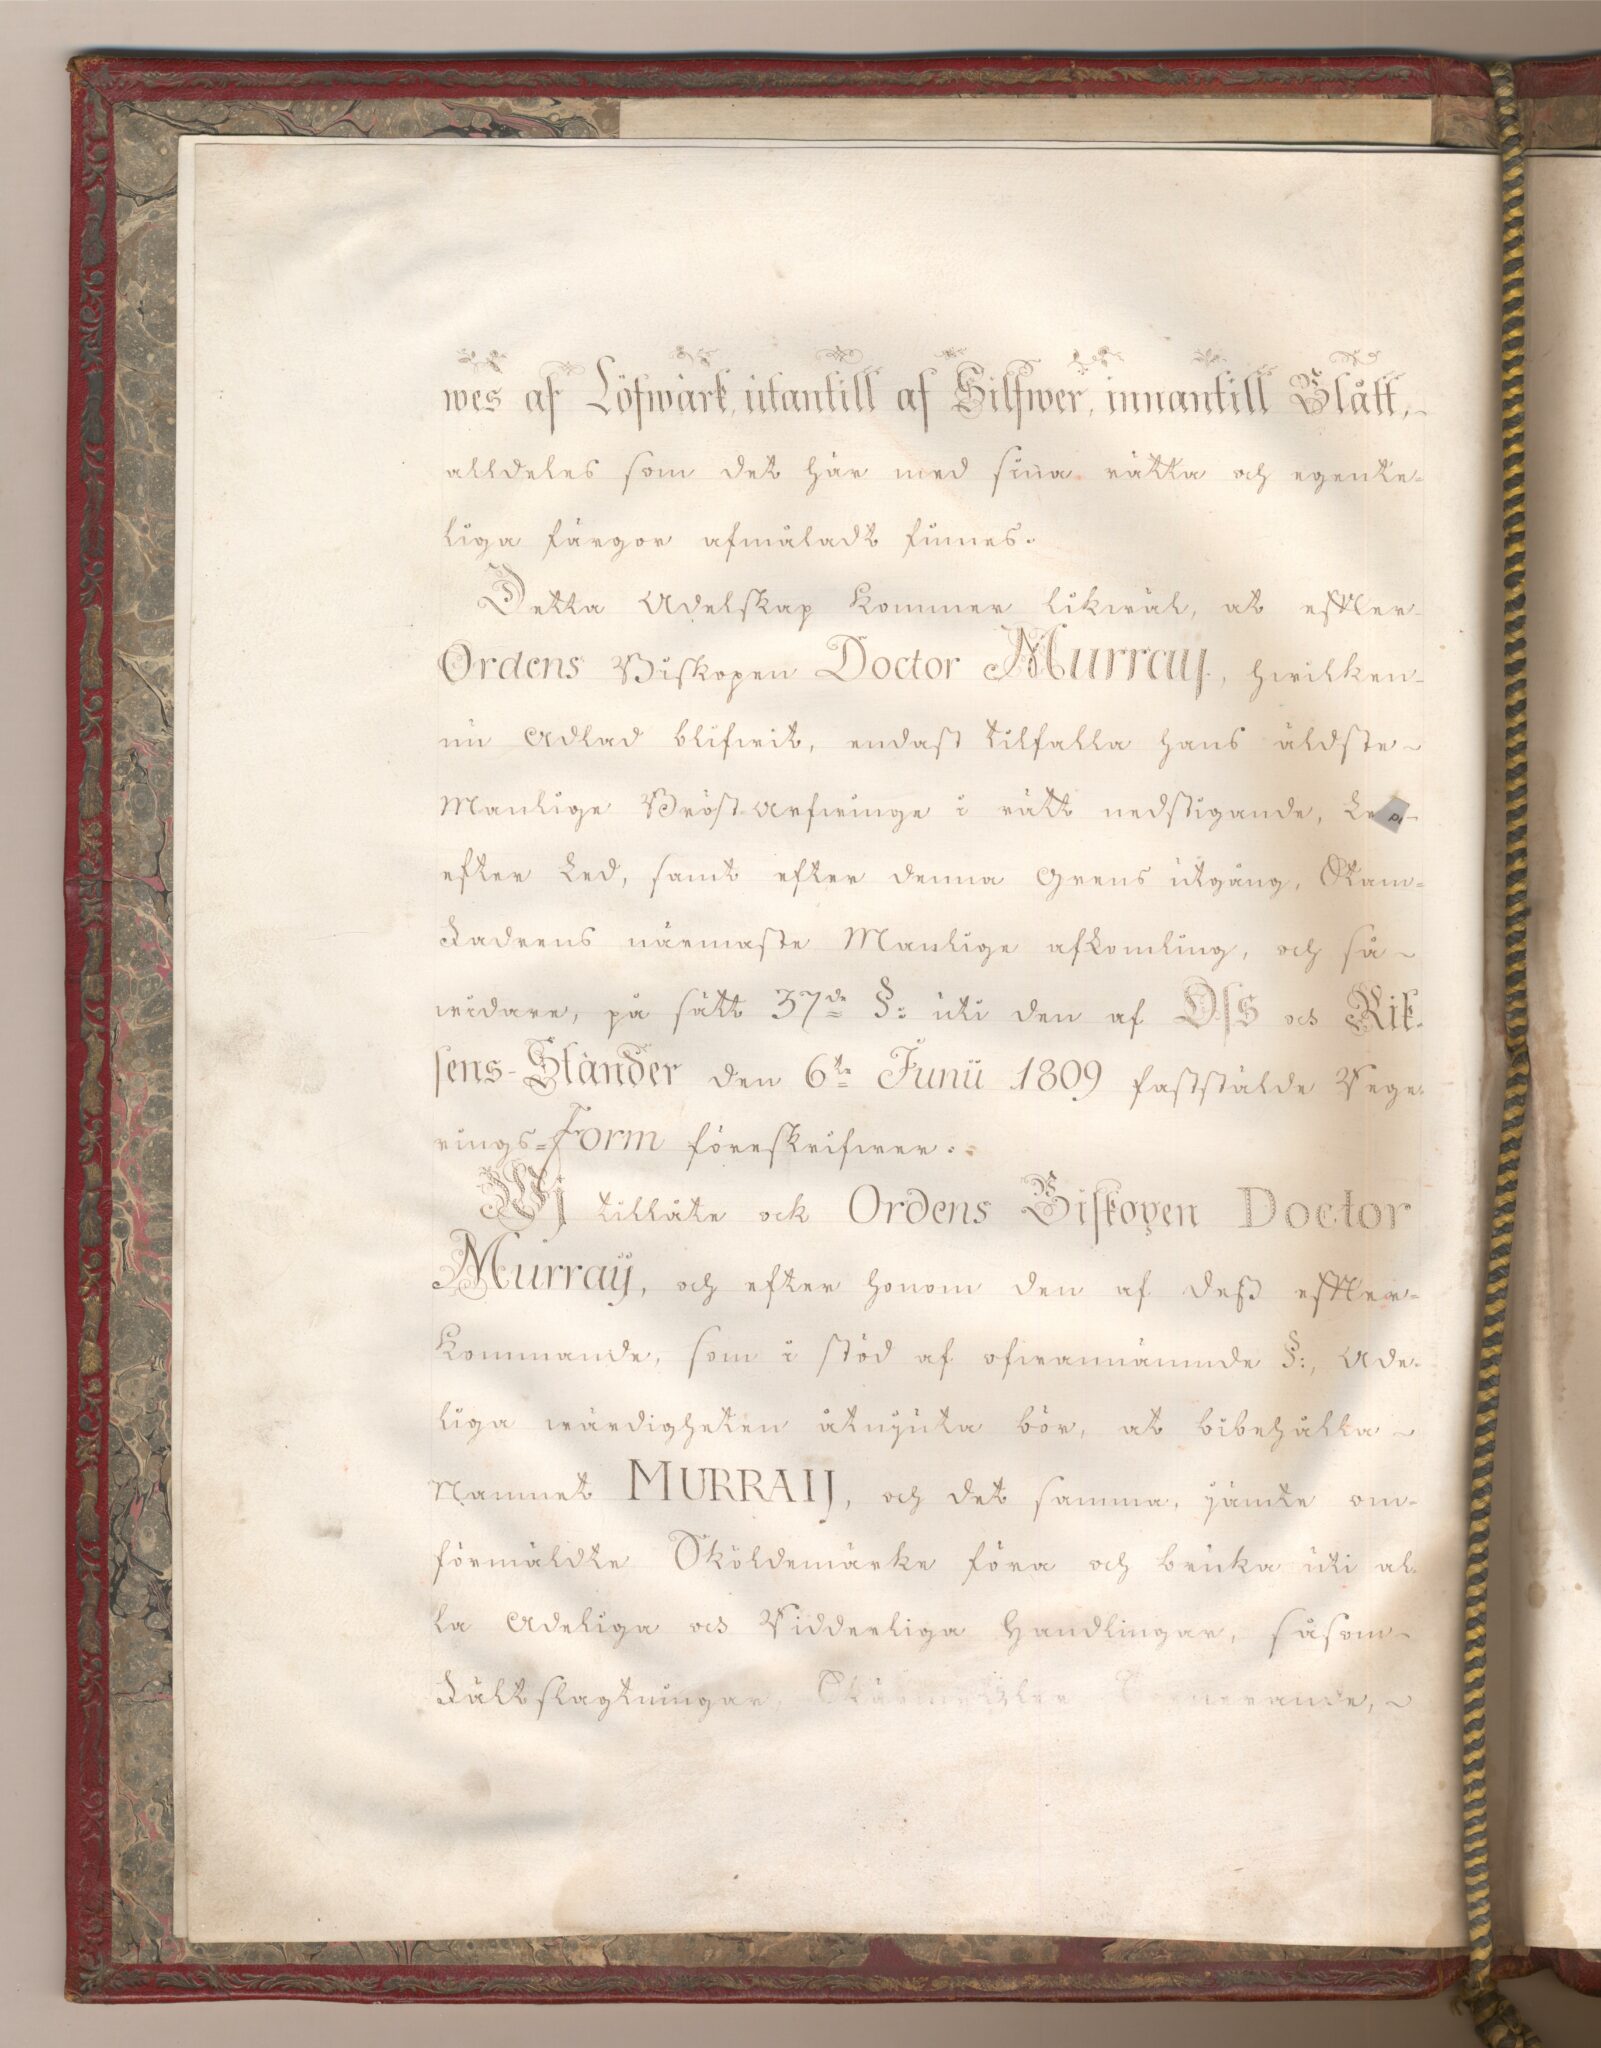 wes af Löfwärk, utantill af Silfwer, innantill Blått,
alldeles som det här med sina rätta och egente-
liga färgor afmåladt finnes.
Detta Adelskap kommer likwäl, at efter
Ordens Biskopen Doctor Murray, hwilken
nu Adlad blifwit, endast tilfalla hans äldste
Manlige Bröst-Arfwinge i rätt nedstigande,
efter Led, samt efter denna Grens utgång, Stam-
Fadrens närmaste Manlige afkomling, och så
widare, på sätt 37de §: uti den af Oss och Rik-
sens-Ständer den 6te Junii 1809 faststälde Rege-
rings-Form föreskrifwer.
Wj tillåte ock Ordens Biskopen Doctor
Murraÿ, och efter honom den af deß efter-
kommande, som i stöd af ofwannämnde §:, Ade-
liga wärdigheten åtnjuta bör, at bibehålla
Namnet MURRAIJ, och det samma, jämte om-
förmäldte Sköldemärke föra och bruka uti al-
la Adeliga och Ridderliga Handlingar, såsom
Fältslagtningar,